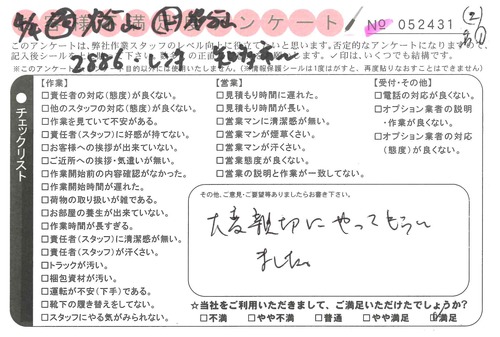 様満アンケート
No 052431
このアンケートは、弊社作業スタッフのレベル向上に役立てたいと思います。否定的なアンケートになりますが、
記入後シールを
✓印は、いくつでも結構です。
※このアンケート
目的以外には使用いたしません。(※情報保護シールは1度はがすと、再度貼りなおすことはできません)
チェックリスト
【作業】
□責任者の対応(態度)が良くない。
□他のスタッフの対応(態度)が良くない。
□作業を見ていて不安がある。
□責任者(スタッフ)に好感が持てない。
□お客様への挨拶が出来ていない。
□ご近所への挨拶・気遣いが無い。
□作業開始前の内容確認がなかった。
□作業開始時間が遅れた。
□荷物の取り扱いが雑である。
□お部屋の養生が出来ていない。
□作業時間が長すぎる。
□責任者(スタッフ)に清潔感が無い。
□責任者(スタッフ)が汗くさい。
□トラックが汚い。
□梱包資材が汚い。
□運転が不安(下手)である。
□靴下の履き替えをしてない。
□スタッフにやる気がみられない。
【営業】
□見積もり時間に遅れた。
□見積もり時間が長い。
□営業マンに清潔感が無い。
□営業マンが煙草くさい。
□営業マンが汗くさい。
□営業態度が良くない。
□営業の説明と作業が一致してない。
【受付・その他】
□電話の対応が良くない。
□オプション業者の説明
・作業が良くない。
□オプション業者の対応
(態度)が良くない。
その他、ご意見・ご要望等ありましたらお書き下さい。
大変親切にやってもらい
ました。
☆当社をご利用いただきまして、ご満足いただけたでしょうか?
□不満 □やや不満 □普通 □やや満足 ☑満足